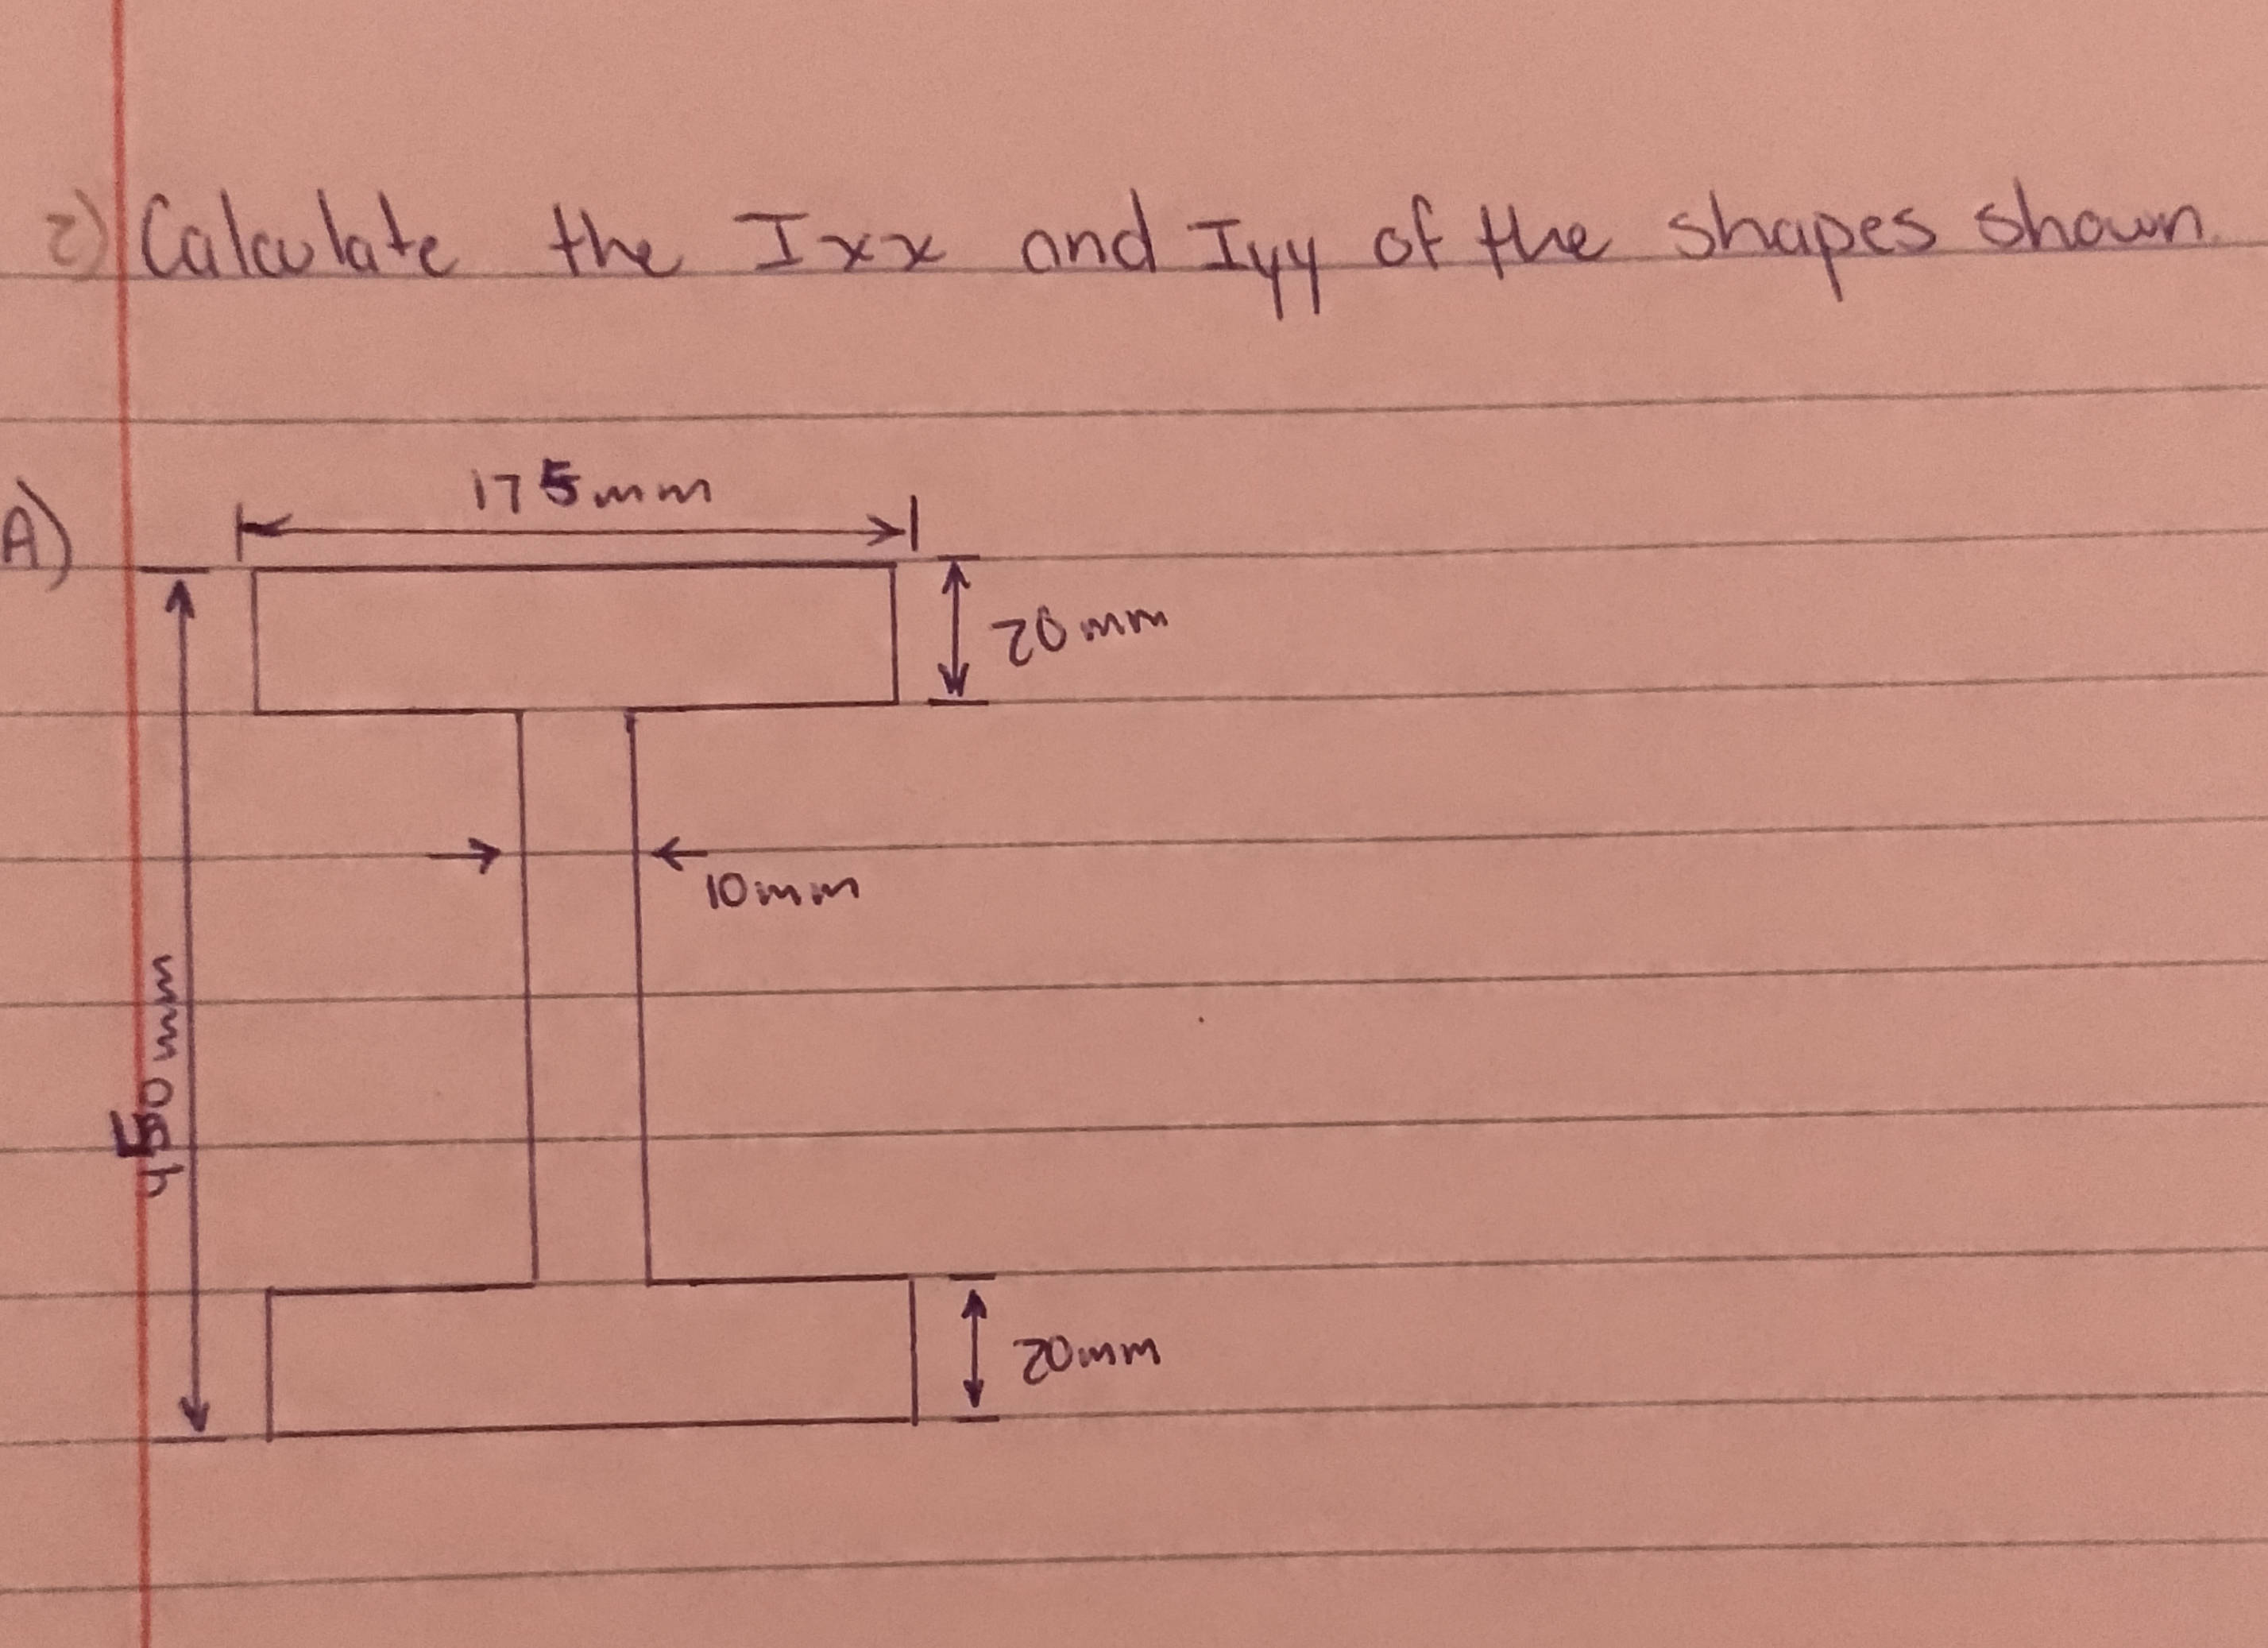 2) Calculate the Ixx and Iyy of the shapes shown.
A)
175mm
20mm
10mm
450mm
20mm